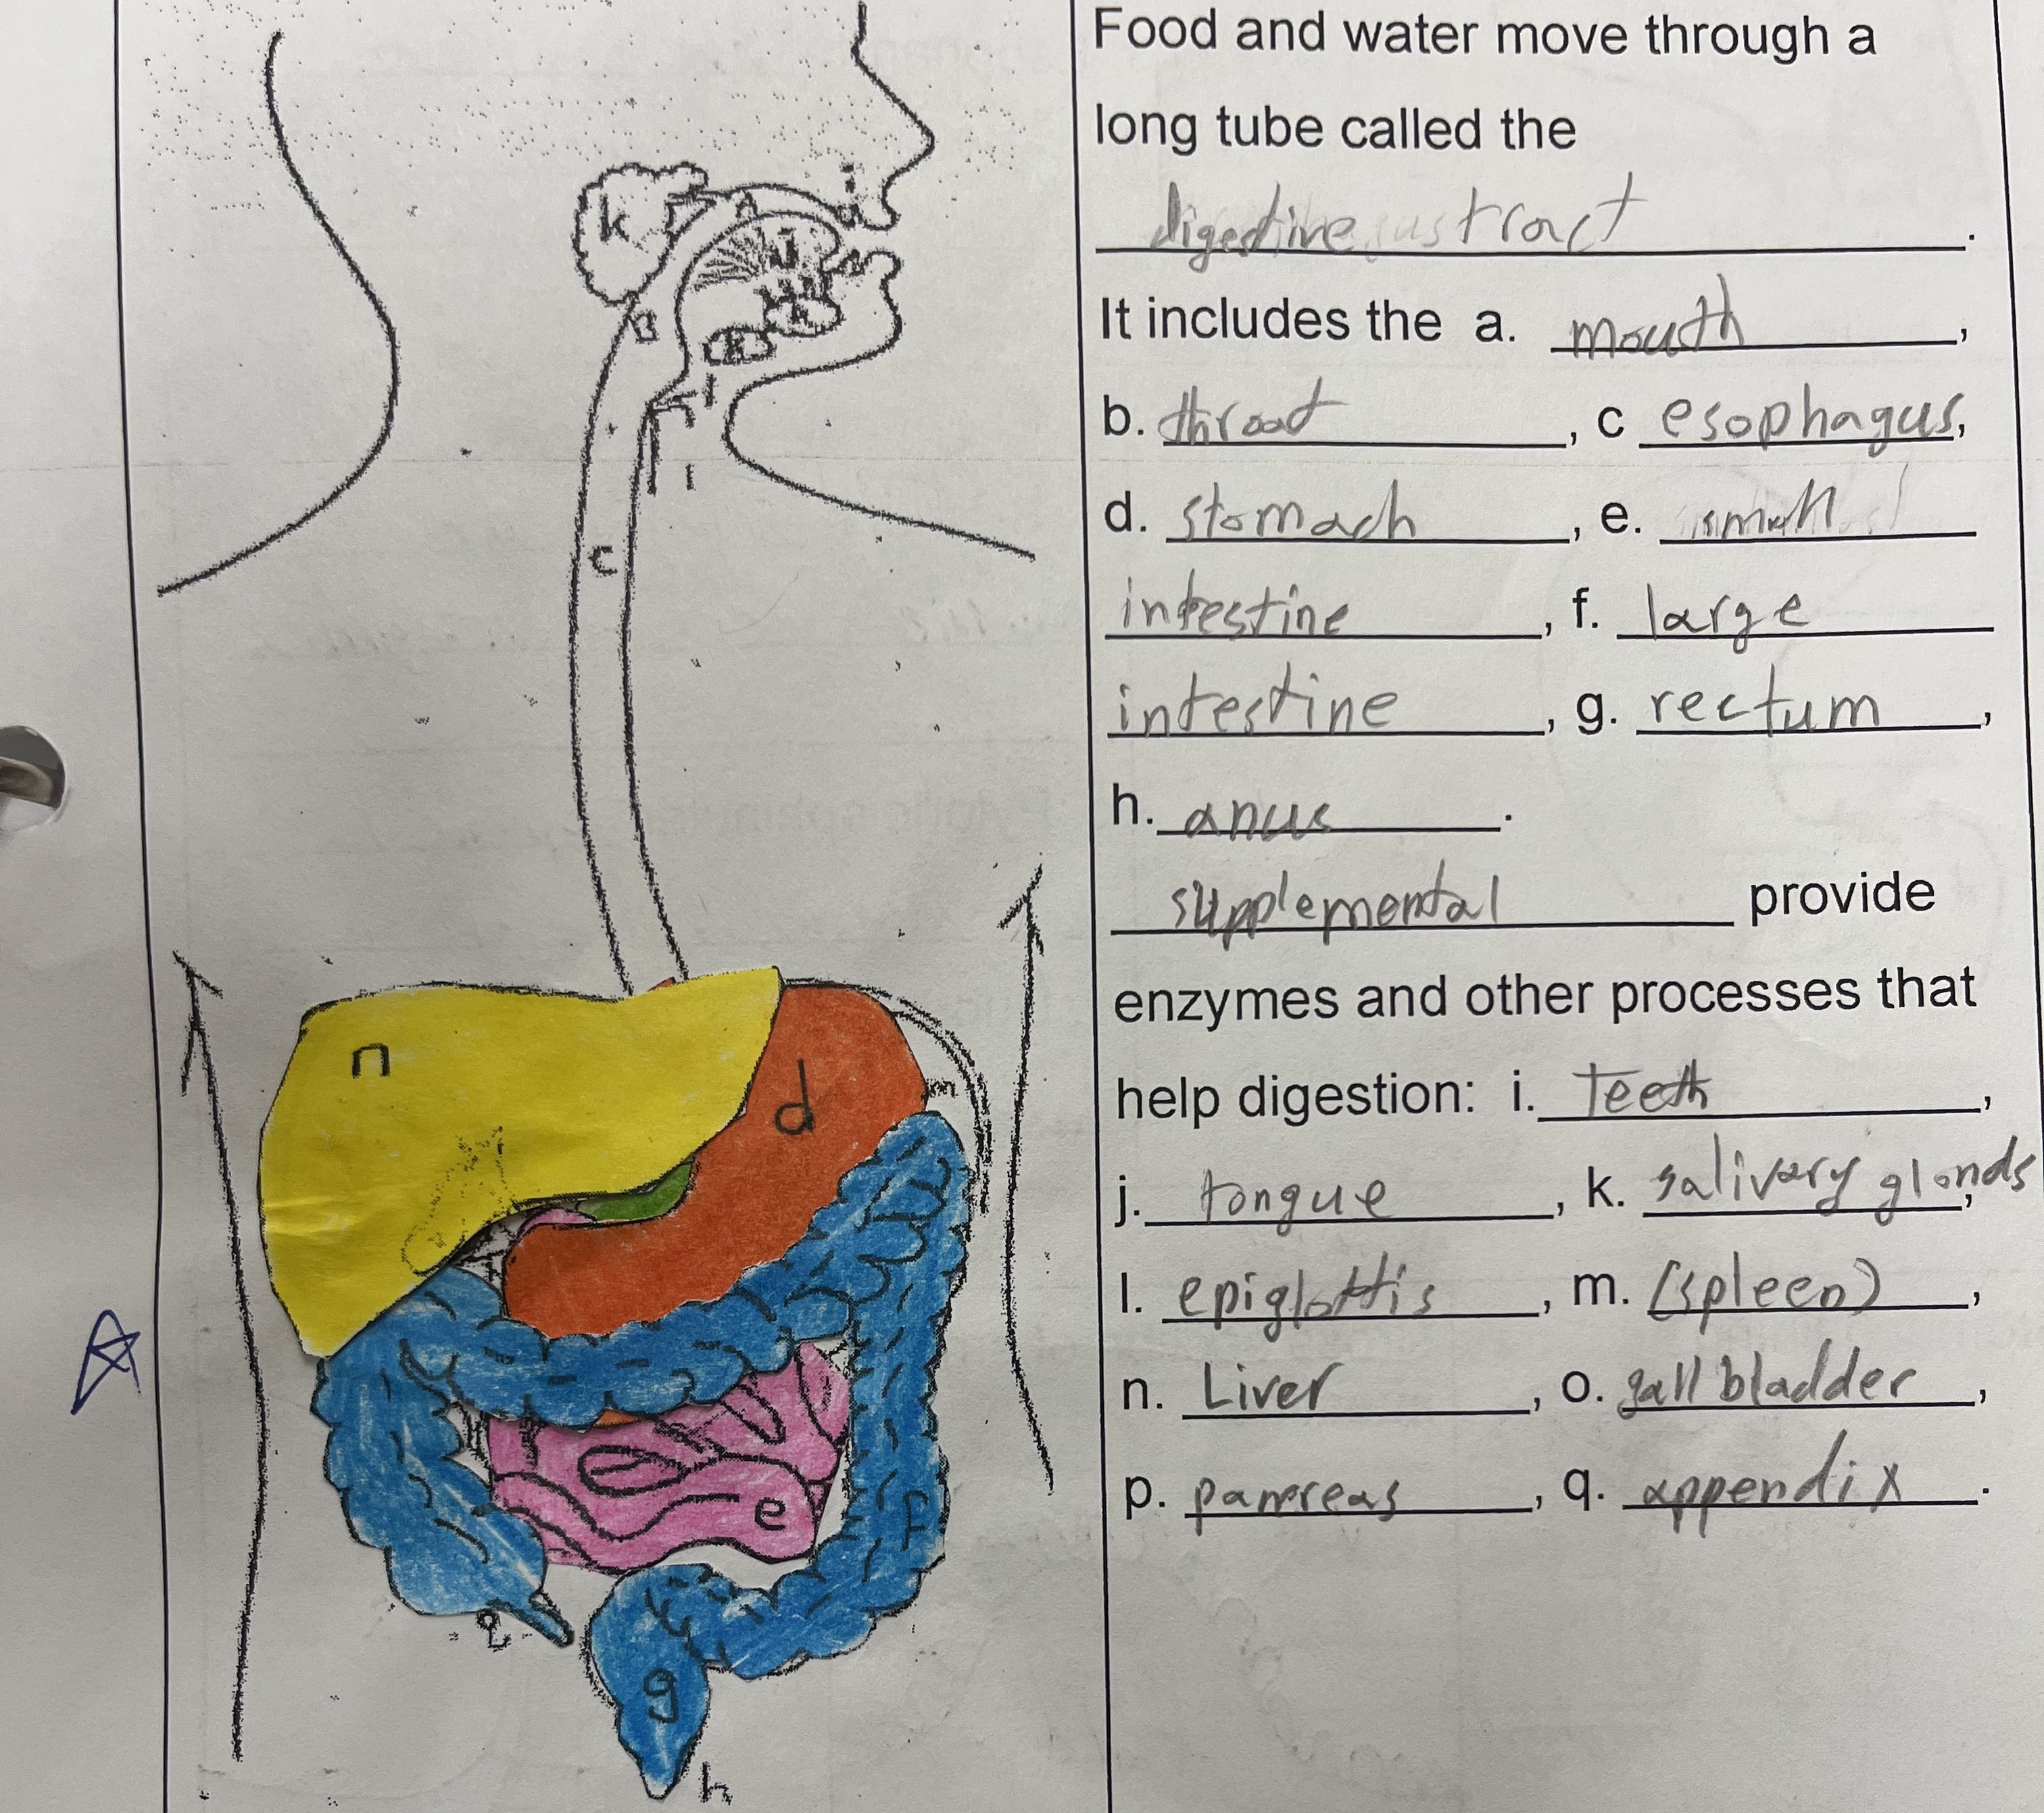 k
i
A
J
k
B
k
l
c
n
d
m
e
f
q
g
h
Food and water move through a
long tube called the
digestive tract.
It includes the a. mouth,
b. throat, c esophagus,
d. stomach, e. small
intestine, f. large
intestine, g. rectum,
h. anus.
supplemental provide
enzymes and other processes that
help digestion: i. Teeth,
j. tongue, k. salivary glands,
l. epiglottis, m. (spleen),
n. Liver, o. gall bladder,
p. pancreas, q. appendix.